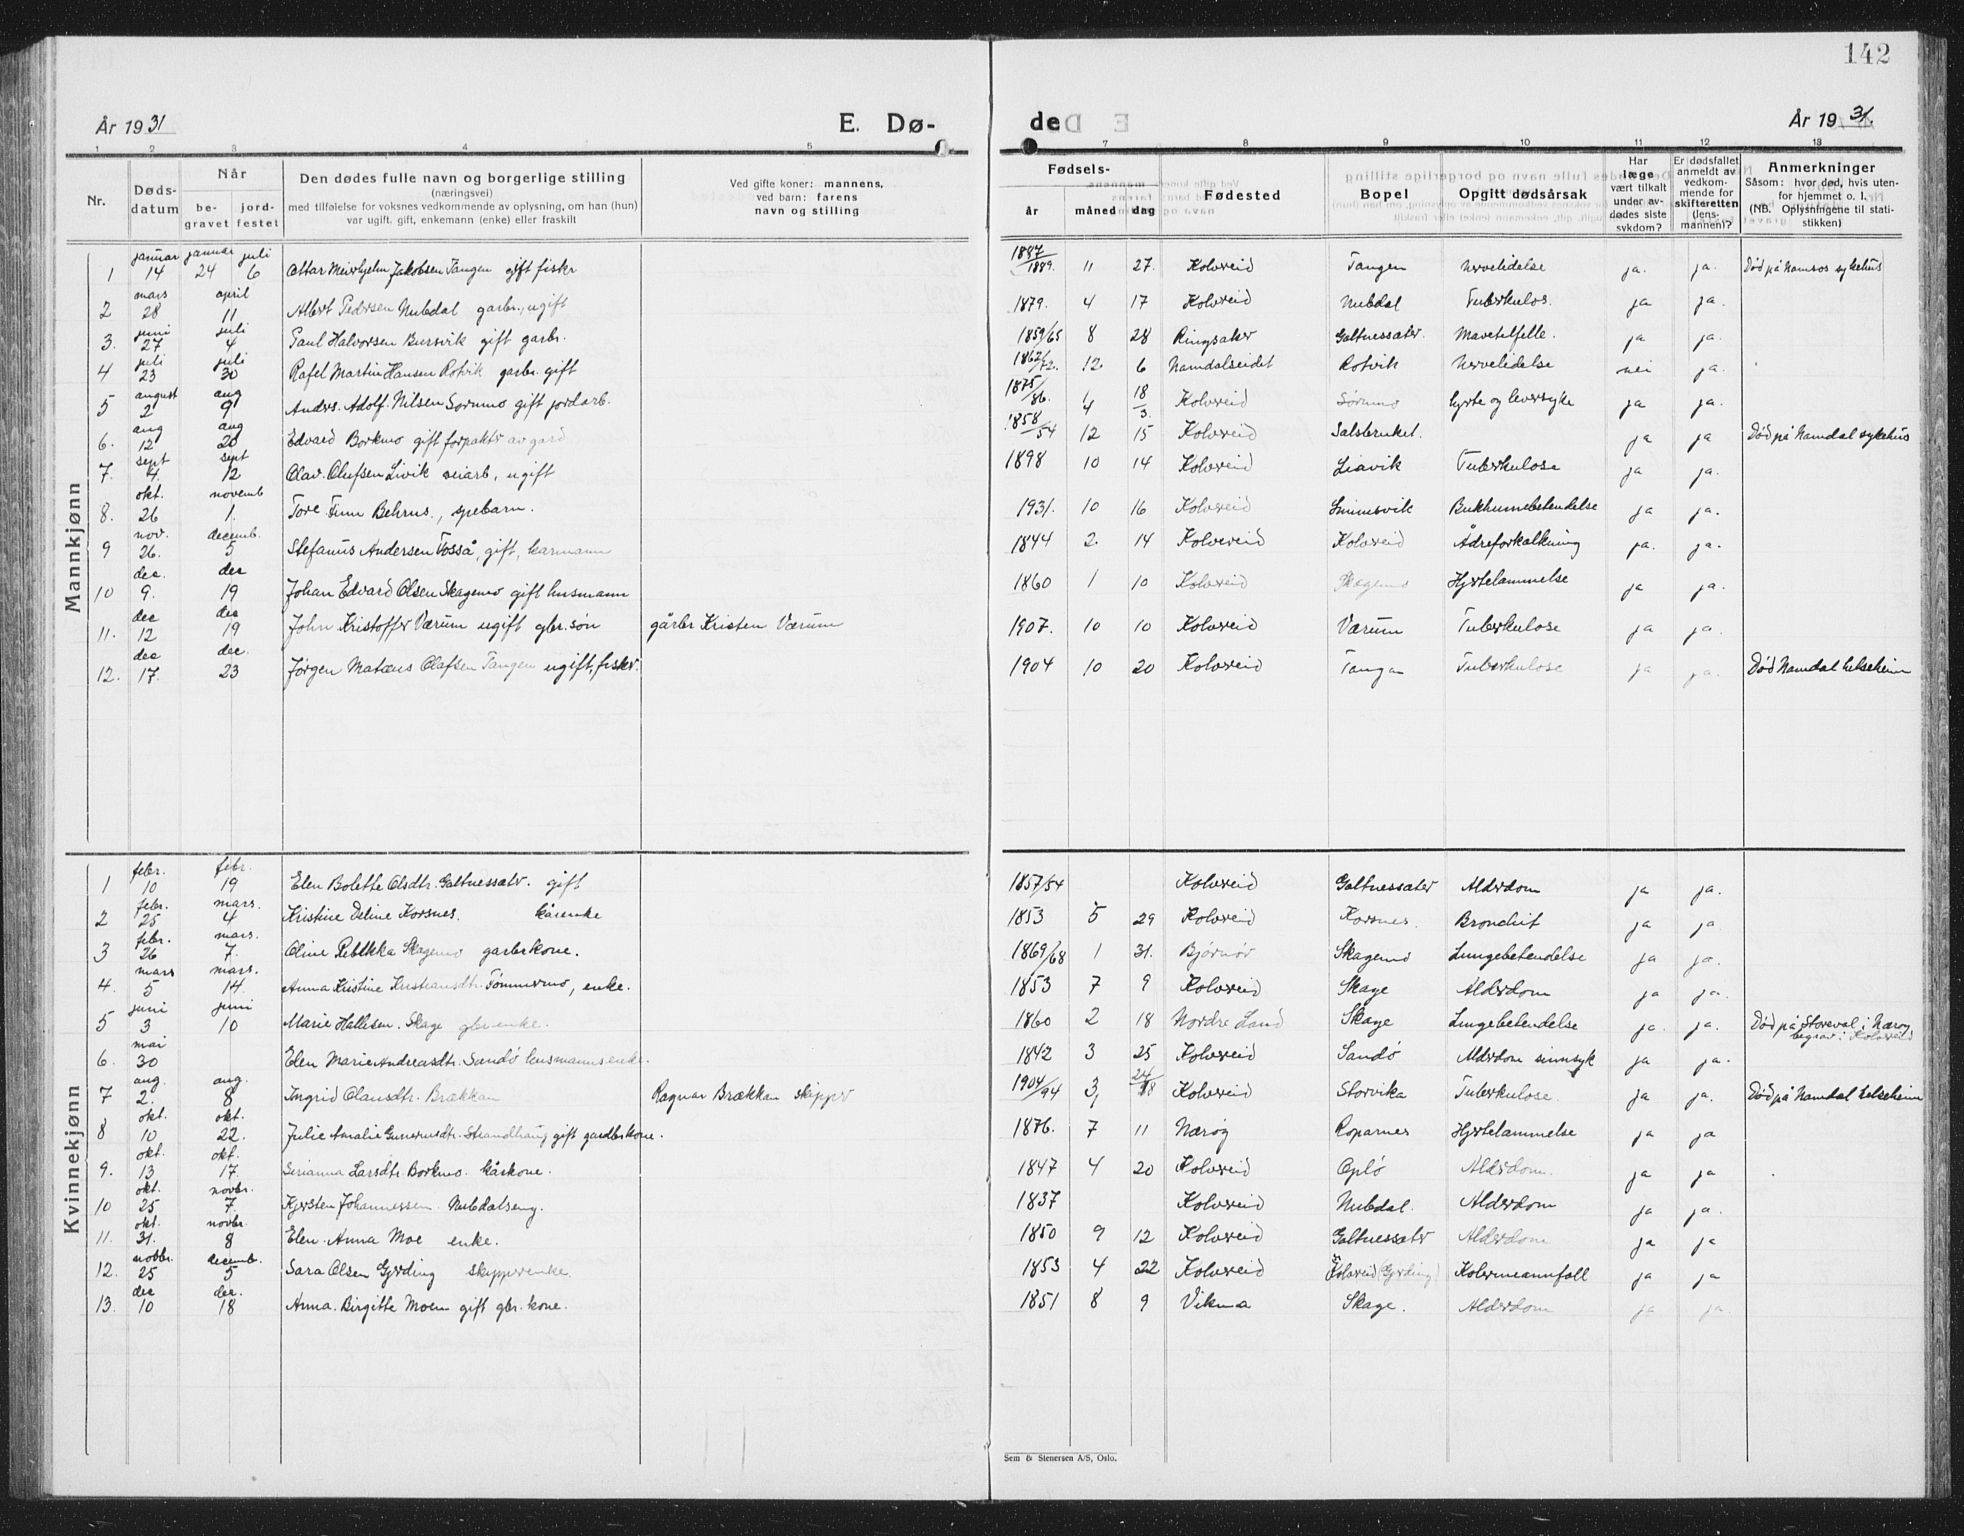 142
År 1931
E. Dø-
de
År 1931.
1 2 3 4 5
7 8 9 10 11 12 13
Nr.
Døds-
datum
Når
be-
gravet
jord-
festet
Den dødes fulle navn og borgerlige stilling
(næringsvei)
med tilføielse for voksnes vedkommende av oplysning, om han (hun)
var ugift, gift, enkemann (enke) eller fraskilt
Ved gifte koner: mannens,
ved barn: farens
navn og stilling
Fødsels-
år måned dag
Fødested
Bopel
Opgitt dødsårsak
Har
læge
vært tilkalt
under av-
dødes siste
sykdom?
Er dødsfallet
anmeldt av
vedkom-
mende for
skifteretten
(lens-
mannen)?
Anmerkninger
Såsom: hvor død, hvis uten-
for hjemmet o. l.
(NB. Oplysningene til stati-
stikken)
Mannkjønn
1 januar 14 januar 24 juli 6 Jakobsen Tangen gift fisker 1889. 11 27. Kolvereid Tangen Nervelidelse ja. ja. Død på Namsos sykehus
2 mars 28 april 11 Albert Pedersen Nubdal garbr., ugift 1879. 4 17 Kolvereid Nubdal Tuberkulos. ja ja.
3. juni 27 juli 4 Paul Halvorsen Bursvik gift garbr. 1859/65 8 28 Ringsaker Galtnessæter. ja ja.
4 juli 23 juli 30 Rafel Martin Hansen Rotvik garbr. gift 1862/72. 12. 6 Namdalseidet Rotvik Nervelidelse nei ja.
5 august 2 aug 9 Anders. Adolf. Nilsen Sørumo gift jordarb. 1875/86. 1/4 18/3. Kolvereid Sørumo hjerte og leversyke ja ja.
6. aug 12 aug 20 Edvard Borkmo gift forpakter av gard 1858/54 12 15 Kolvereid Salsbruket. ja ja Død på Namdal sykehus
7. sept 4. sept 12 Olav. Olufsen Livik veiarb, ugift 1898 10 14 Kolvereid Liavik Tuberkulose ja ja.
8. okt. 26 novemb 1. Tore Finn Behrns., spebarn. 1931. 10 16 Kolvereid Simmsvik Bukhinnebetendelse ja ja.
9 nov. 26. decemb. 5 Stefanus Andersen Fosså, gift, kårmann 1844 2. 14 Kolvereid Kolvereid Ådreforkalkning ja. ja.
10 dec. 9. dec 19 Johan Edvard Olsen Skagemo gift husmann 1860 1 10 Kolvereid Skagemo Hjertelammelse ja ja.
11. dec 12 dec 19 John Kristoffer Værum ugift gbr. søn gårbr Kristen Værum 1907. 10 10 Kolvereid Værum Tuberkulose ja ja.
12. dec 17. dec. 23 Jørgen Matæus Olafsen Tangen ugift, fisker. 1904 10 20 Kolvereid Tangen Tuberkulose ja ja. Død Namdal helseheim
Kvinnekjønn
1 febr. 10 febr. 19 Elen Bolette Olsdtr. Galtnessæter. gift 1857/54 Kolvereid Galtnessæter Alderdom ja ja.
2 febr. 25 mars. 4 Kristine Deline Korsnes. kårenke 1853 5 29 Kolvereid Korsnes. Bronchit ja ja
3 febr. 26 mars. 7. Oline Rebekka Skagemo garbrskone. 1869/68 1 31. Bjørnør Skagemo Lungebetendelse ja ja.
4. mars 5 mars. 14. Anna Kistine Kristiansdtr. Tømmermo, enke. 1853 7 9 Kolvereid Skage Alderdom ja ja.
5 juni 3 juni 10 Marie Hallesen. Skage gbr. enke. 1860 2 18 Nordre Land Skage Lungebetendelse ja. ja. Død på Storeval i Nærøy begrav. i Kolvereid
6. mai 30 Elen Marie Andreasdtr. Sandø husmannsenke. 1842 3 25 Kolvereid Sandø Alderdom sinnsyk ja ja.
7 aug. 2. aug. 8 Ingrid Olausdtr. Brækkan Ragnar Brækkan skipper 1904/94 3/1 24/18 Kolvereid Storvika Tuberkulose. ja ja. Død på Namdal helseheim
8 okt. 10 okt. 22. Julie Amalie Gunerusdtr. Strandhaug gift gardbrkone. 1876. 7 11 Nærøy Roparnes Hjertelammelse ja ja
9. okt. 13 okt. 17. Serianna Larsdtr. Borkmo. kårkone. 1847 4 20 Kolvereid Oplø Alderdom. ja ja.
10 okt. 25 novbr. 7. Kjersten Johannessen. Nubdalseng. 1837 Kolvereid Nubdal. Alderdom ja ja.
11. okt. 31. novbr. 8 Elen. Anna Moe enke. 1850 9 12 Kolvereid Galtnessæter Alderdom ja ja
12. novbr. 25 decemb. 5 Sara Olsen Gjerding skipperenke. 1853 4 22 Kolvereid Kolvereid (Gjerding) ja ja
13. dec 10 dec. 18 Anna. Birgitte Moen gift gbr. kone. 1851 8 9 Vikna Skage. Alderdom ja ja.
Sem & Stenersen A/S, Oslo.